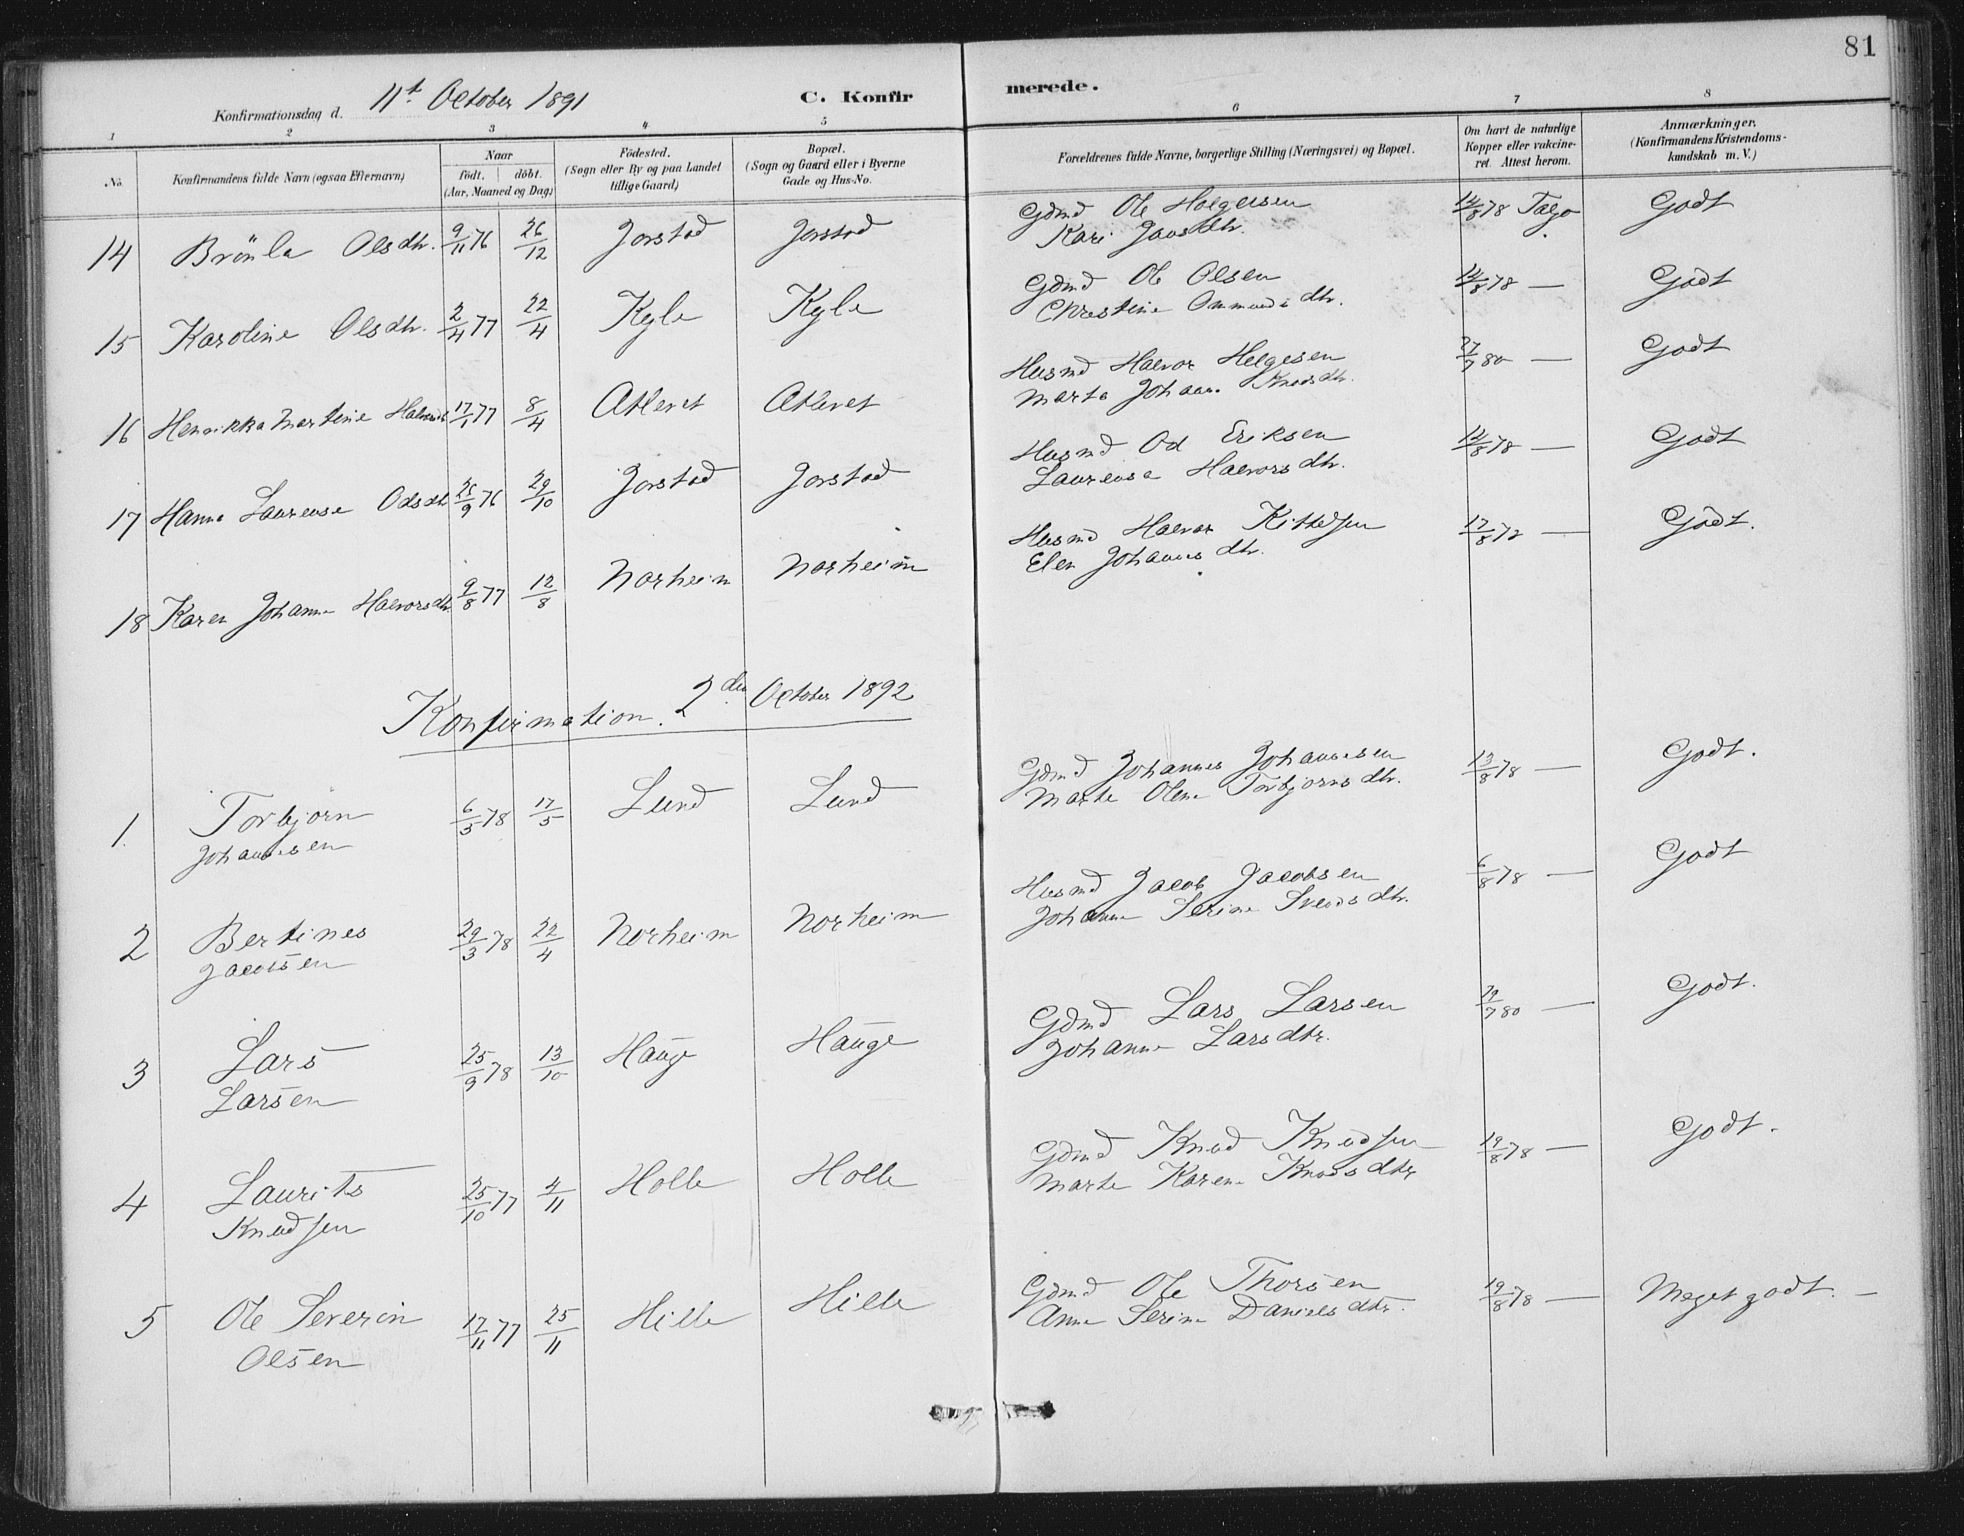 81
Konfirmationsdag d. 11t October 1891
C. Konfir
merede.
1 2 3 4 5 6 7 8
No.
Konfirmandens fulde Navn (ogsaa Efternavn)
Naar
födt. döbt.
(Aar, Maaned og Dag)
Födested.
(Sogn eller By og paa Landet
tillige Gaard)
Bopæl.
(Sogn og Gaard eller i Byerne
Gade og Hus-No.
Forældrenes fulde Navne, borgerlige Stilling (Næringsvei) og Bopæl.
Om havt de naturlige
Kopper eller vakcine-
ret. Attest herom.
Anmærkninger.
(Konfirmandens Kristendoms-
kundskab m. V.)
14 Brönla Olsdtr. 9/11 76 26/12 Jorstad Jorstad Gdmd Ole Holgersen 14/8 78 Godt
Kari dtr.
15 Karoline Olsdtr. 2/4 77 22/4 Kyle Kyle Gdmd Ole Olsen 14/8 78 — Godt
Christine Ommundsdtr.
16 Henrikka Martine 17/1 77 8/4 Atleret Atleret Husmd Halvor Helgesen 27/7 80 — Godt
Marta Johanne Knudsdtr.
17 Hanna Laurense Odsdtr 26/9 76 29/10 Jorstad Jorstad Husmd Od Eriksen 14/8 78 — Godt
Laurense Halvorsdtr.
18 Karen Johanne Halvorsdtr 9/8 77 12/8 Norheim Norheim Husmd Halvor Kittelsen 17/8 72 — Godt.
Elen Johannesdtr.
Konfirmation. 2den October 1892
1. Torbjørn 6/3 78 17/5 Lund Lund Gdmd Johannes Johannesen 13/8 78 — Godt.
Johannesen Marte Olene Torbjørnsdtr.
2 Bertines 29/3 78 22/4 Norheim Norheim Husmd Jacob Jacobsen 6/8 78 — Godt
Jacobsen Johanne Serine Svendsdtr.
3 Lars 25/9 78 13/10 Hauge Hauge Gdmd Lars Larsen 29/7 80 — Godt.
Larsen Johanne Larsdtr.
4 Laurits 25/10 77 4/11 Holle Holle Gdmd Knud Knudsen 19/8 78 — Godt.
Knudsen Marte Karen Knudsdtr
5 Ole Severin 17/11 77 25/11 Hille Hille Gdmd Ole Thorsen 19/8 78 — Meget godt. —
Olsen Anne Serine Danielsdtr.